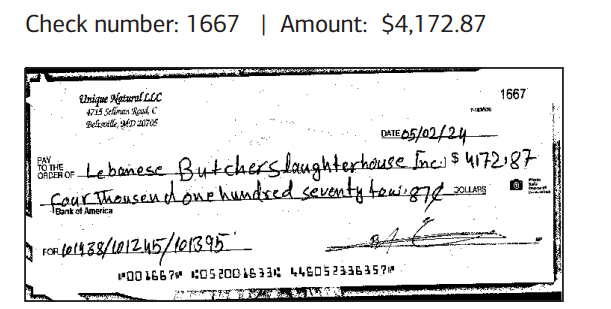 Check number: 1667 | Amount: $4,172.87
Unique Natural LLC
1667
4715 Sellman Road, C
Beltsville, MD 20705
DATE 05/02/24
PAY TO THE ORDER OF Lebanese Butcher slaughterhouse Inc. $ 4172.87
four Thousend one hundsed seventy tow 87¢ DOLLARS
Bank of America
FOR 101438/101245/101395
⑈001667⑈ ⑆052001633⑆ 446052336357⑈